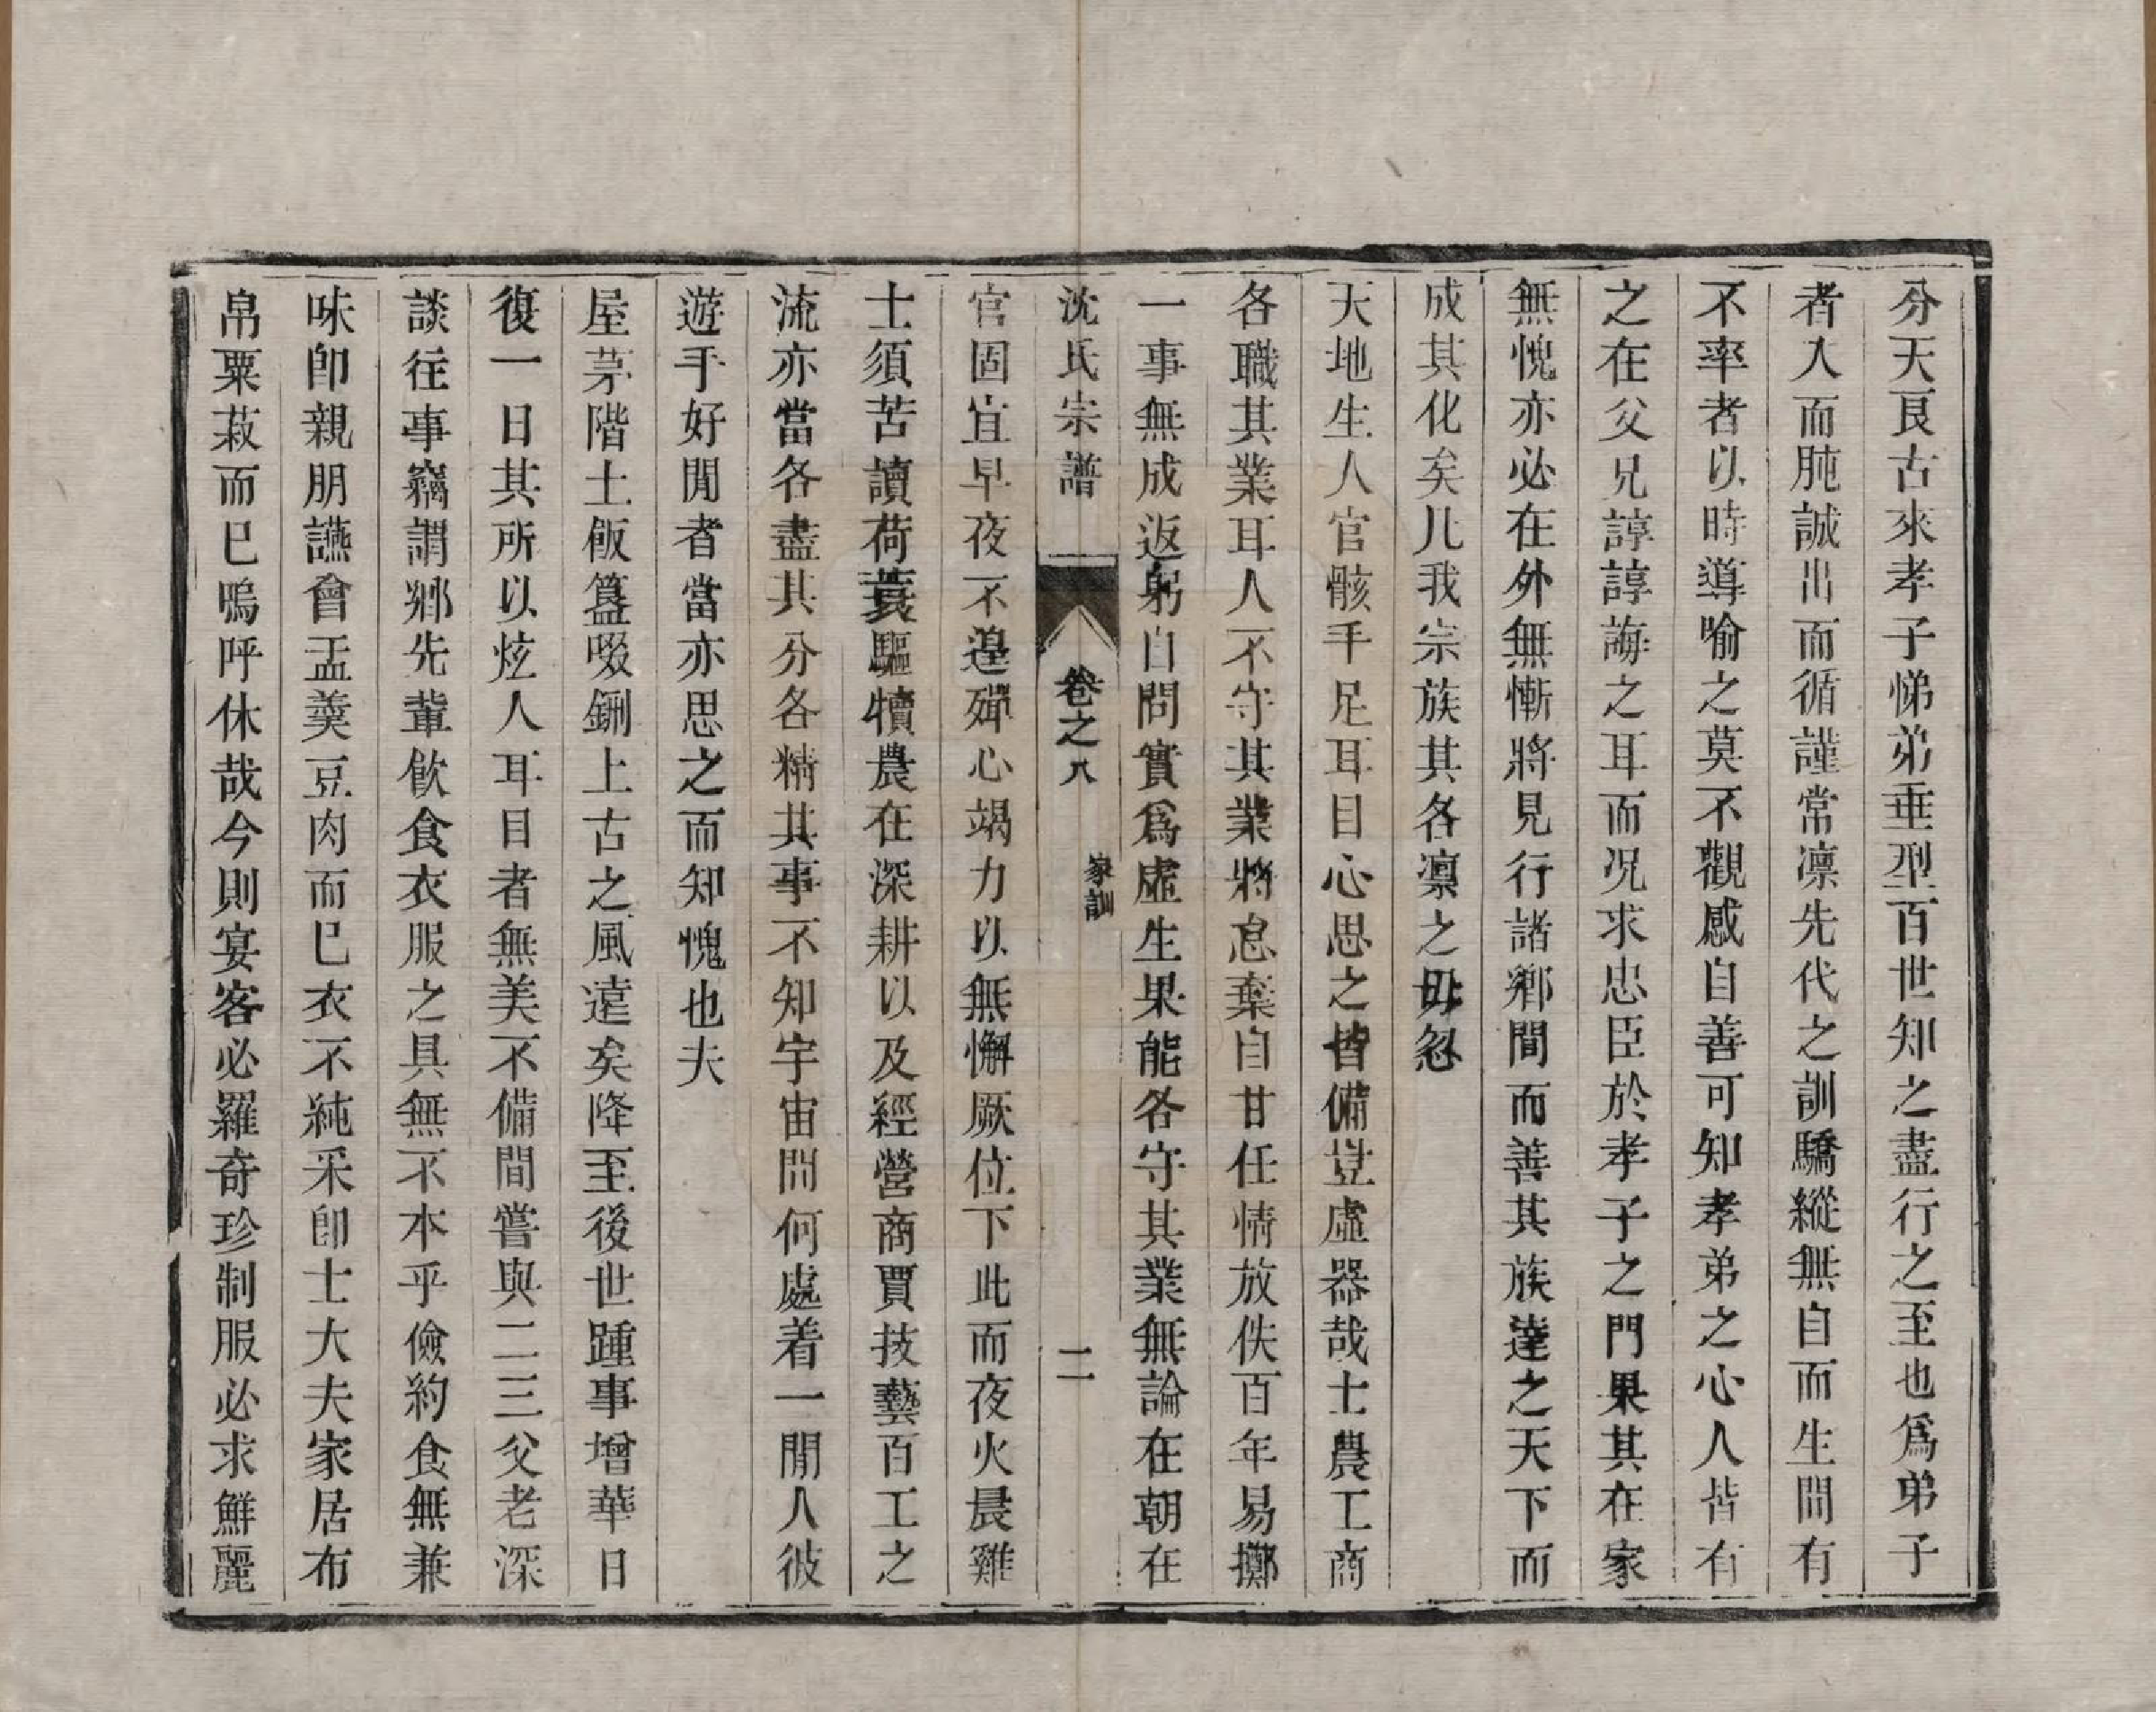 分天艮古來孝子悌弟垂型百世知之盡行之至也爲弟子
者入而肫誠出而循謹常凛先代之訓驕縱無自而生間有
不率者以時導喻之莫不觀感自善可知孝弟之心人皆有
之在父兄諄諄誨之耳而况求忠臣於孝子之門果其在家
無愧亦必在外無慚將見行諸鄉閭而善其族達之天下而
成其化矣凡我宗族其各凛之毋忽
天地生人官骸手足耳目心思之皆備豈虛器哉士農工商
各職其業耳人不守其業將怠棄自甘任情放佚百年易擲
一事無成返躬自問實爲虛生果能各守其業無論在朝在
沈氏宗譜 卷之八 家訓 二
官固宜早夜不遑殫心竭力以無懈厥位下此而夜火晨雞
士須苦讀荷蓑驅犢農在深耕以及經營商賈技藝百工之
流亦當各盡其分各精其事不知宇宙間何處着一閒人彼
遊手好閒者當亦思之而知愧也夫
屋茅階土飯簋啜鉶上古之風遠矣降至後世踵事增華日
復一日其所以炫人耳目者無美不備間嘗與二三父老深
談往事竊謂鄉先輩飲食衣服之具無不本乎儉約食無兼
味卽親朋讌會盂羹豆肉而已衣不純采卽士大夫家居布
帛粟菽而已嗚呼休哉今則宴客必羅奇珍制服必求鮮麗